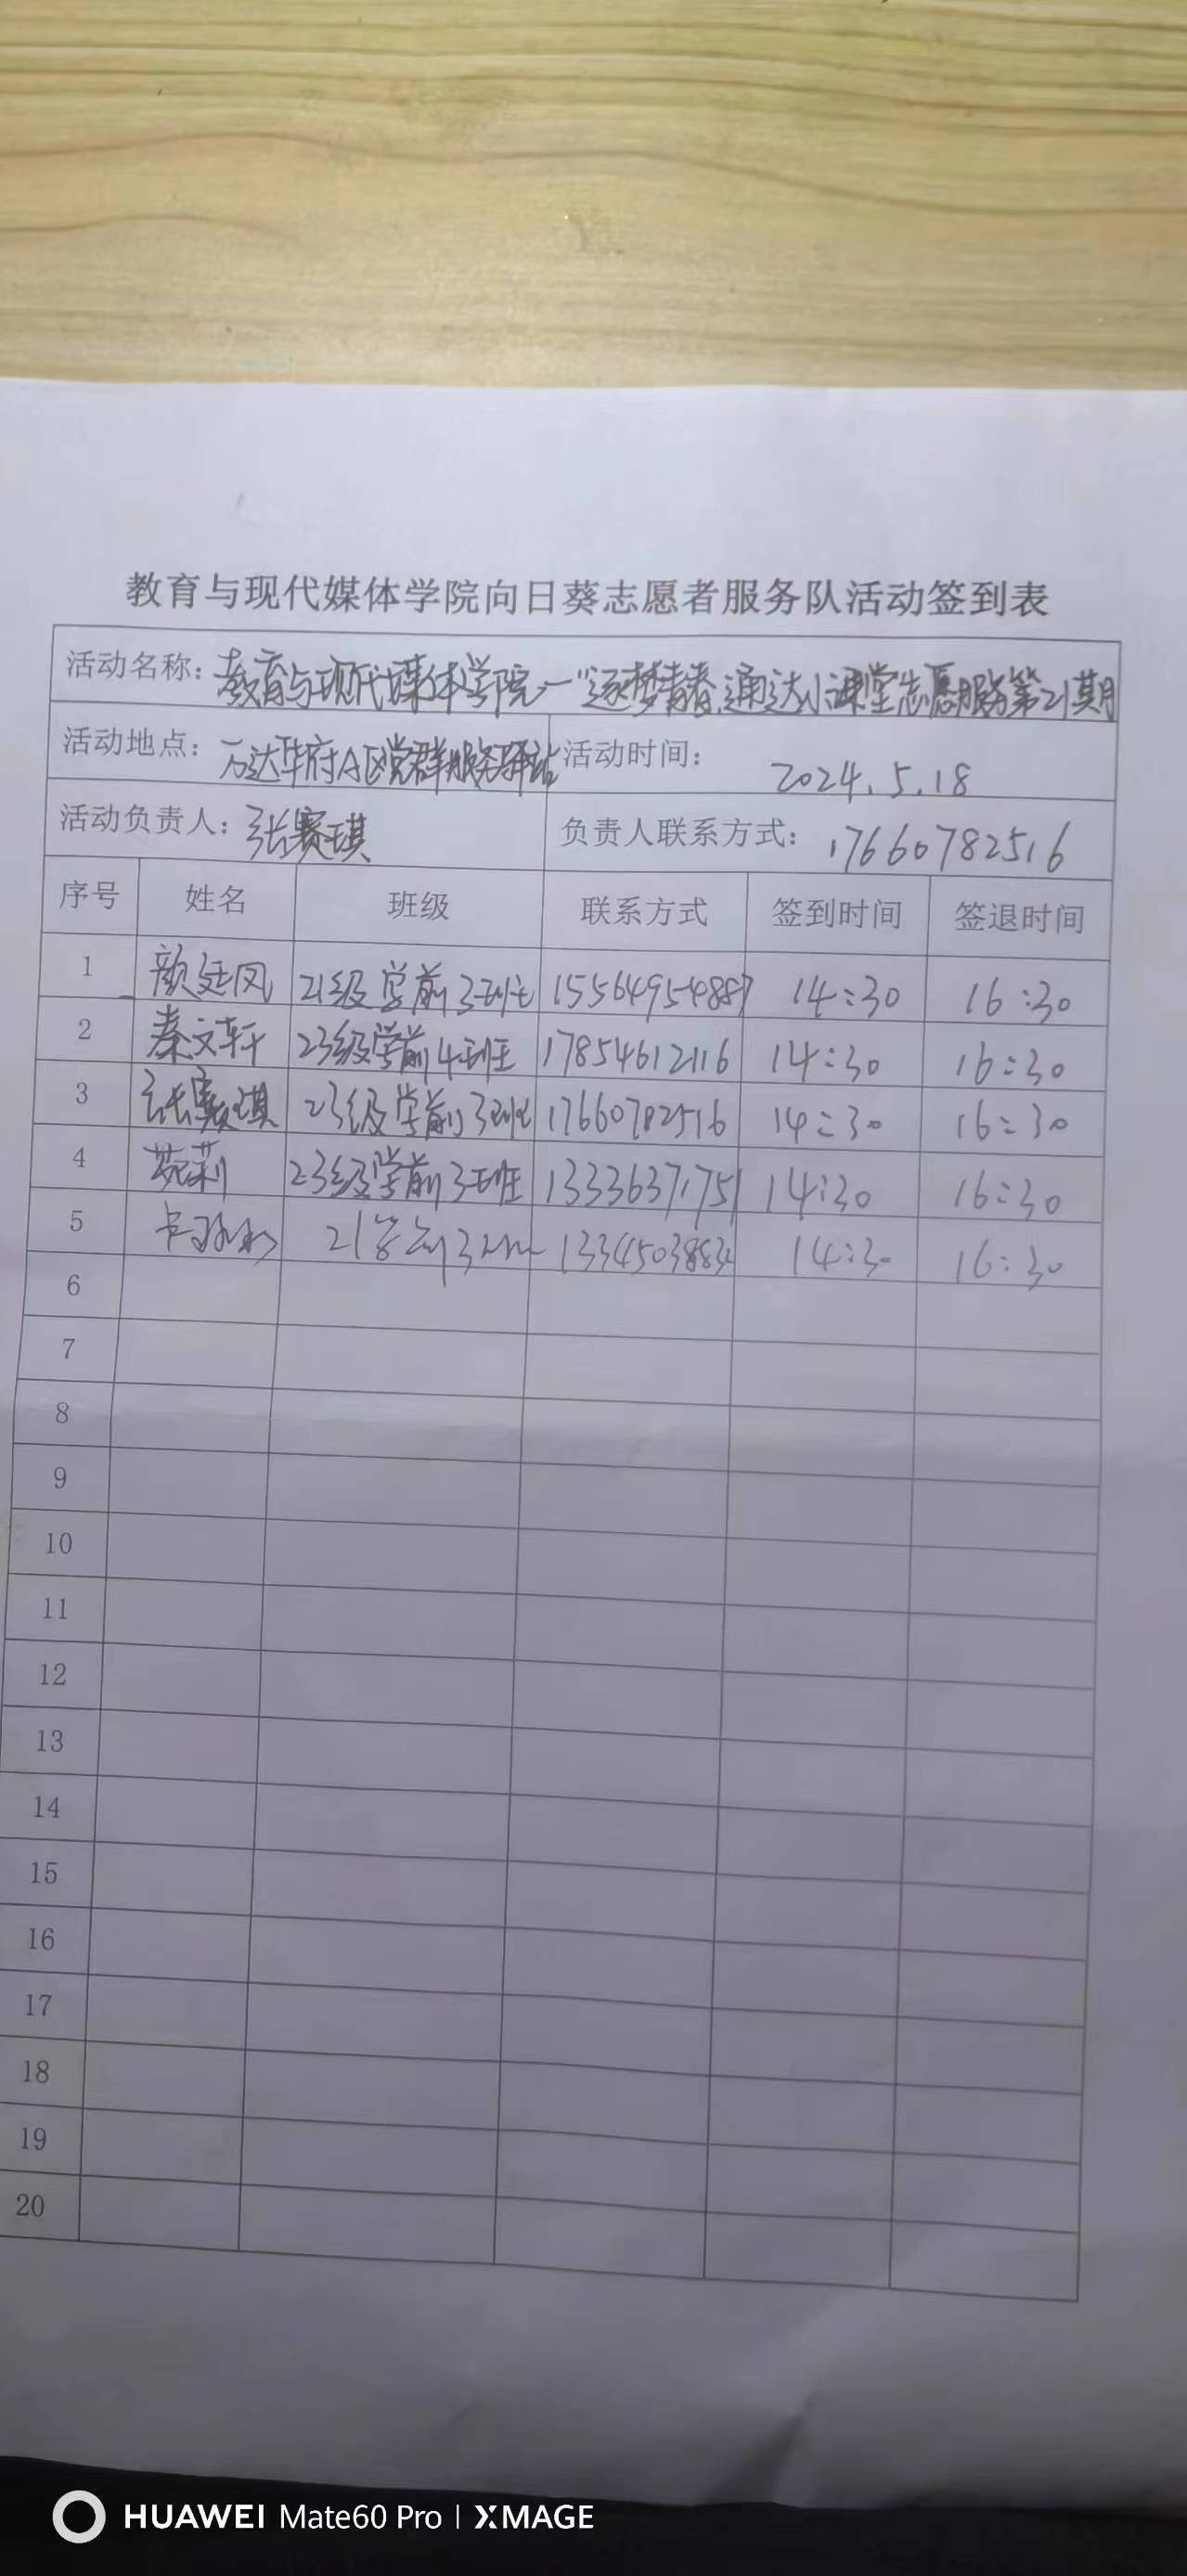 教育与现代媒体学院向日葵志愿者服务队活动签到表
活动名称：教育与现代媒体学院—“逐梦青春，通达小课堂志愿服务第21期
活动地点：万达华府A区党群服务驿站 活动时间： 2024.5.18
活动负责人：张赛琪 负责人联系方式：17660782516
序号 姓名 班级 联系方式 签到时间 签退时间
1 颜廷凤 21级学前3班 15564954887 14:30 16:30
2 秦文轩 23级学前4班 17854612116 14:30 16:30
3 张赛琪 23级学前3班 17660782516 14:30 16:30
4 苑莉 23级学前3班 13336371751 14:30 16:30
5 21学前3班 14:30 16:30
6
7
8
9
10
11
12
13
14
15
16
17
18
19
20
HUAWEI Mate60 Pro | XMAGE